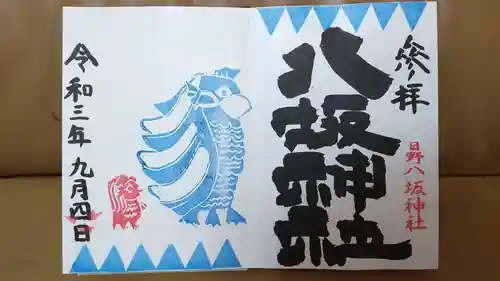 参拝
八坂神社
日野八坂神社
令和三年九月四日